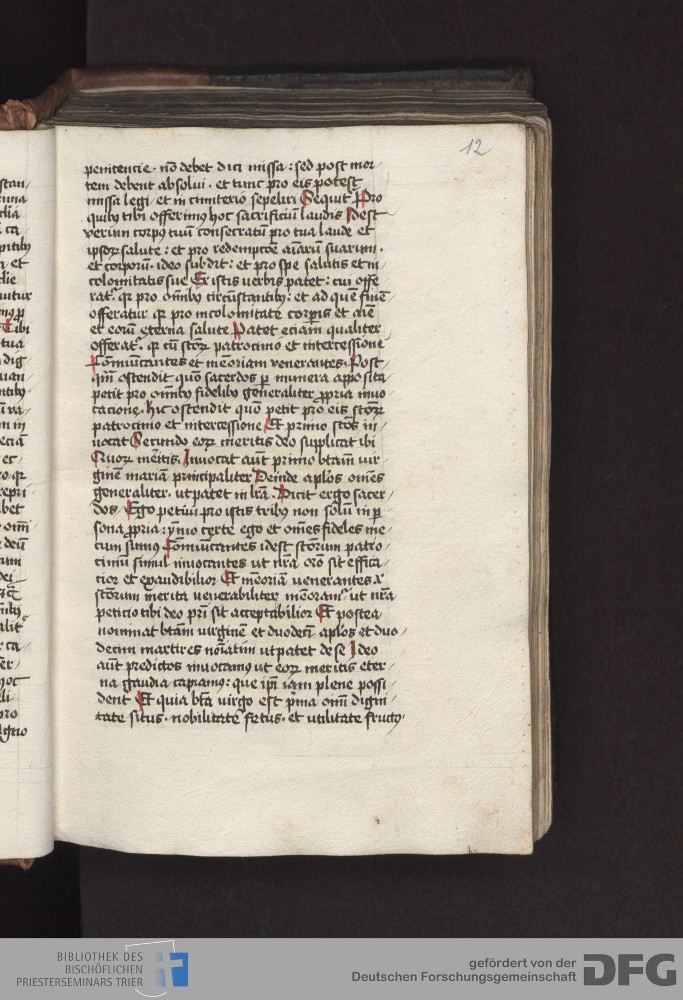 12
penitencie · nō debet dici missa : sed post mor
tem debent absolui · et tunc pro eis potest
missa legi · et in cimiterio sepeliri Sequit̄ Pro
quibꝫ tibi offerimꝰ hoc sacrificiū laudis Idest
verum corpꝰ tuū consecratū pro tua laude et
ipsoꝝ salute : et pro redempcōe aīarū suarum ·
et corporū · ideo subdit : et pro spe salutis et in
colomitatis sue Ex istis verbis patet : cui offe
rat̄ · qꝛ pro om̄ibꝫ circūstantibꝫ : et ad quē finē
offeratur qꝛ pro incolomitate corpis et aīe
et eorū eterna salute Patet eciam qualiter
offerat̄ · qꝛ cū stōꝝ patrocinio et intercessione
Com̄unicantes et memoriam venerantes · Post
qm̄ ostendit quō sacerdos ꝑ munera apposita
petit pro om̄ibꝫ fidelibꝫ generaliter ꝓpria inuo
cacione · hic ostendit quō petit pro eis stōꝝ
patrocinio et intercessione Et primo stōs in
uocat Secundo eoꝝ meritis deo supplicat ibi
Quoꝝ meritis · Inuocat aūt primo btām vir
ginē mariā principaliter Deinde apl̄os om̄es
generaliter · vt patet in lr̄a · Dicit ergo sacer
dos · Ego petiui pro istis tribꝫ non solū in ꝑ
sona ꝓpria : ymo certe ego et om̄es fideles me
cum sumꝰ Com̄unicantes idest stōrum patro
ciniū simul inuocantes vt nr̄a orō sit effica
cior et exaudibilior Et memoriā venerantes
stōrum merita venerabiliter memoram̄ · vt nr̄a
peticio tibi deo pr̄i sit acceptabilior Et postea
nominat btām virginē et duodecī apl̄os et duo
decim martires noīatim vt patet de se Ideo
aūt predictos inuocamꝰ vt eoꝝ meritis eter
na gaudia capiamꝰ : que ip̄i iam plene possi
dent Et quia btā virgo est pma om̄i digni
tate situs · nobilitate fetus · et vtilitate fructꝰ
BIBLIOTHEK DES
BISCHÖFLICHEN
PRIESTERSEMINARS TRIER
gefördert von der
Deutschen Forschungsgemeinschaft
DFG